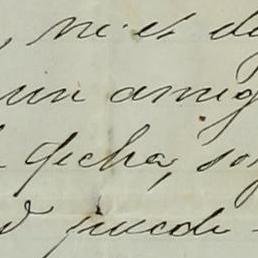 , ni es de
un amig
fecha, so
puede